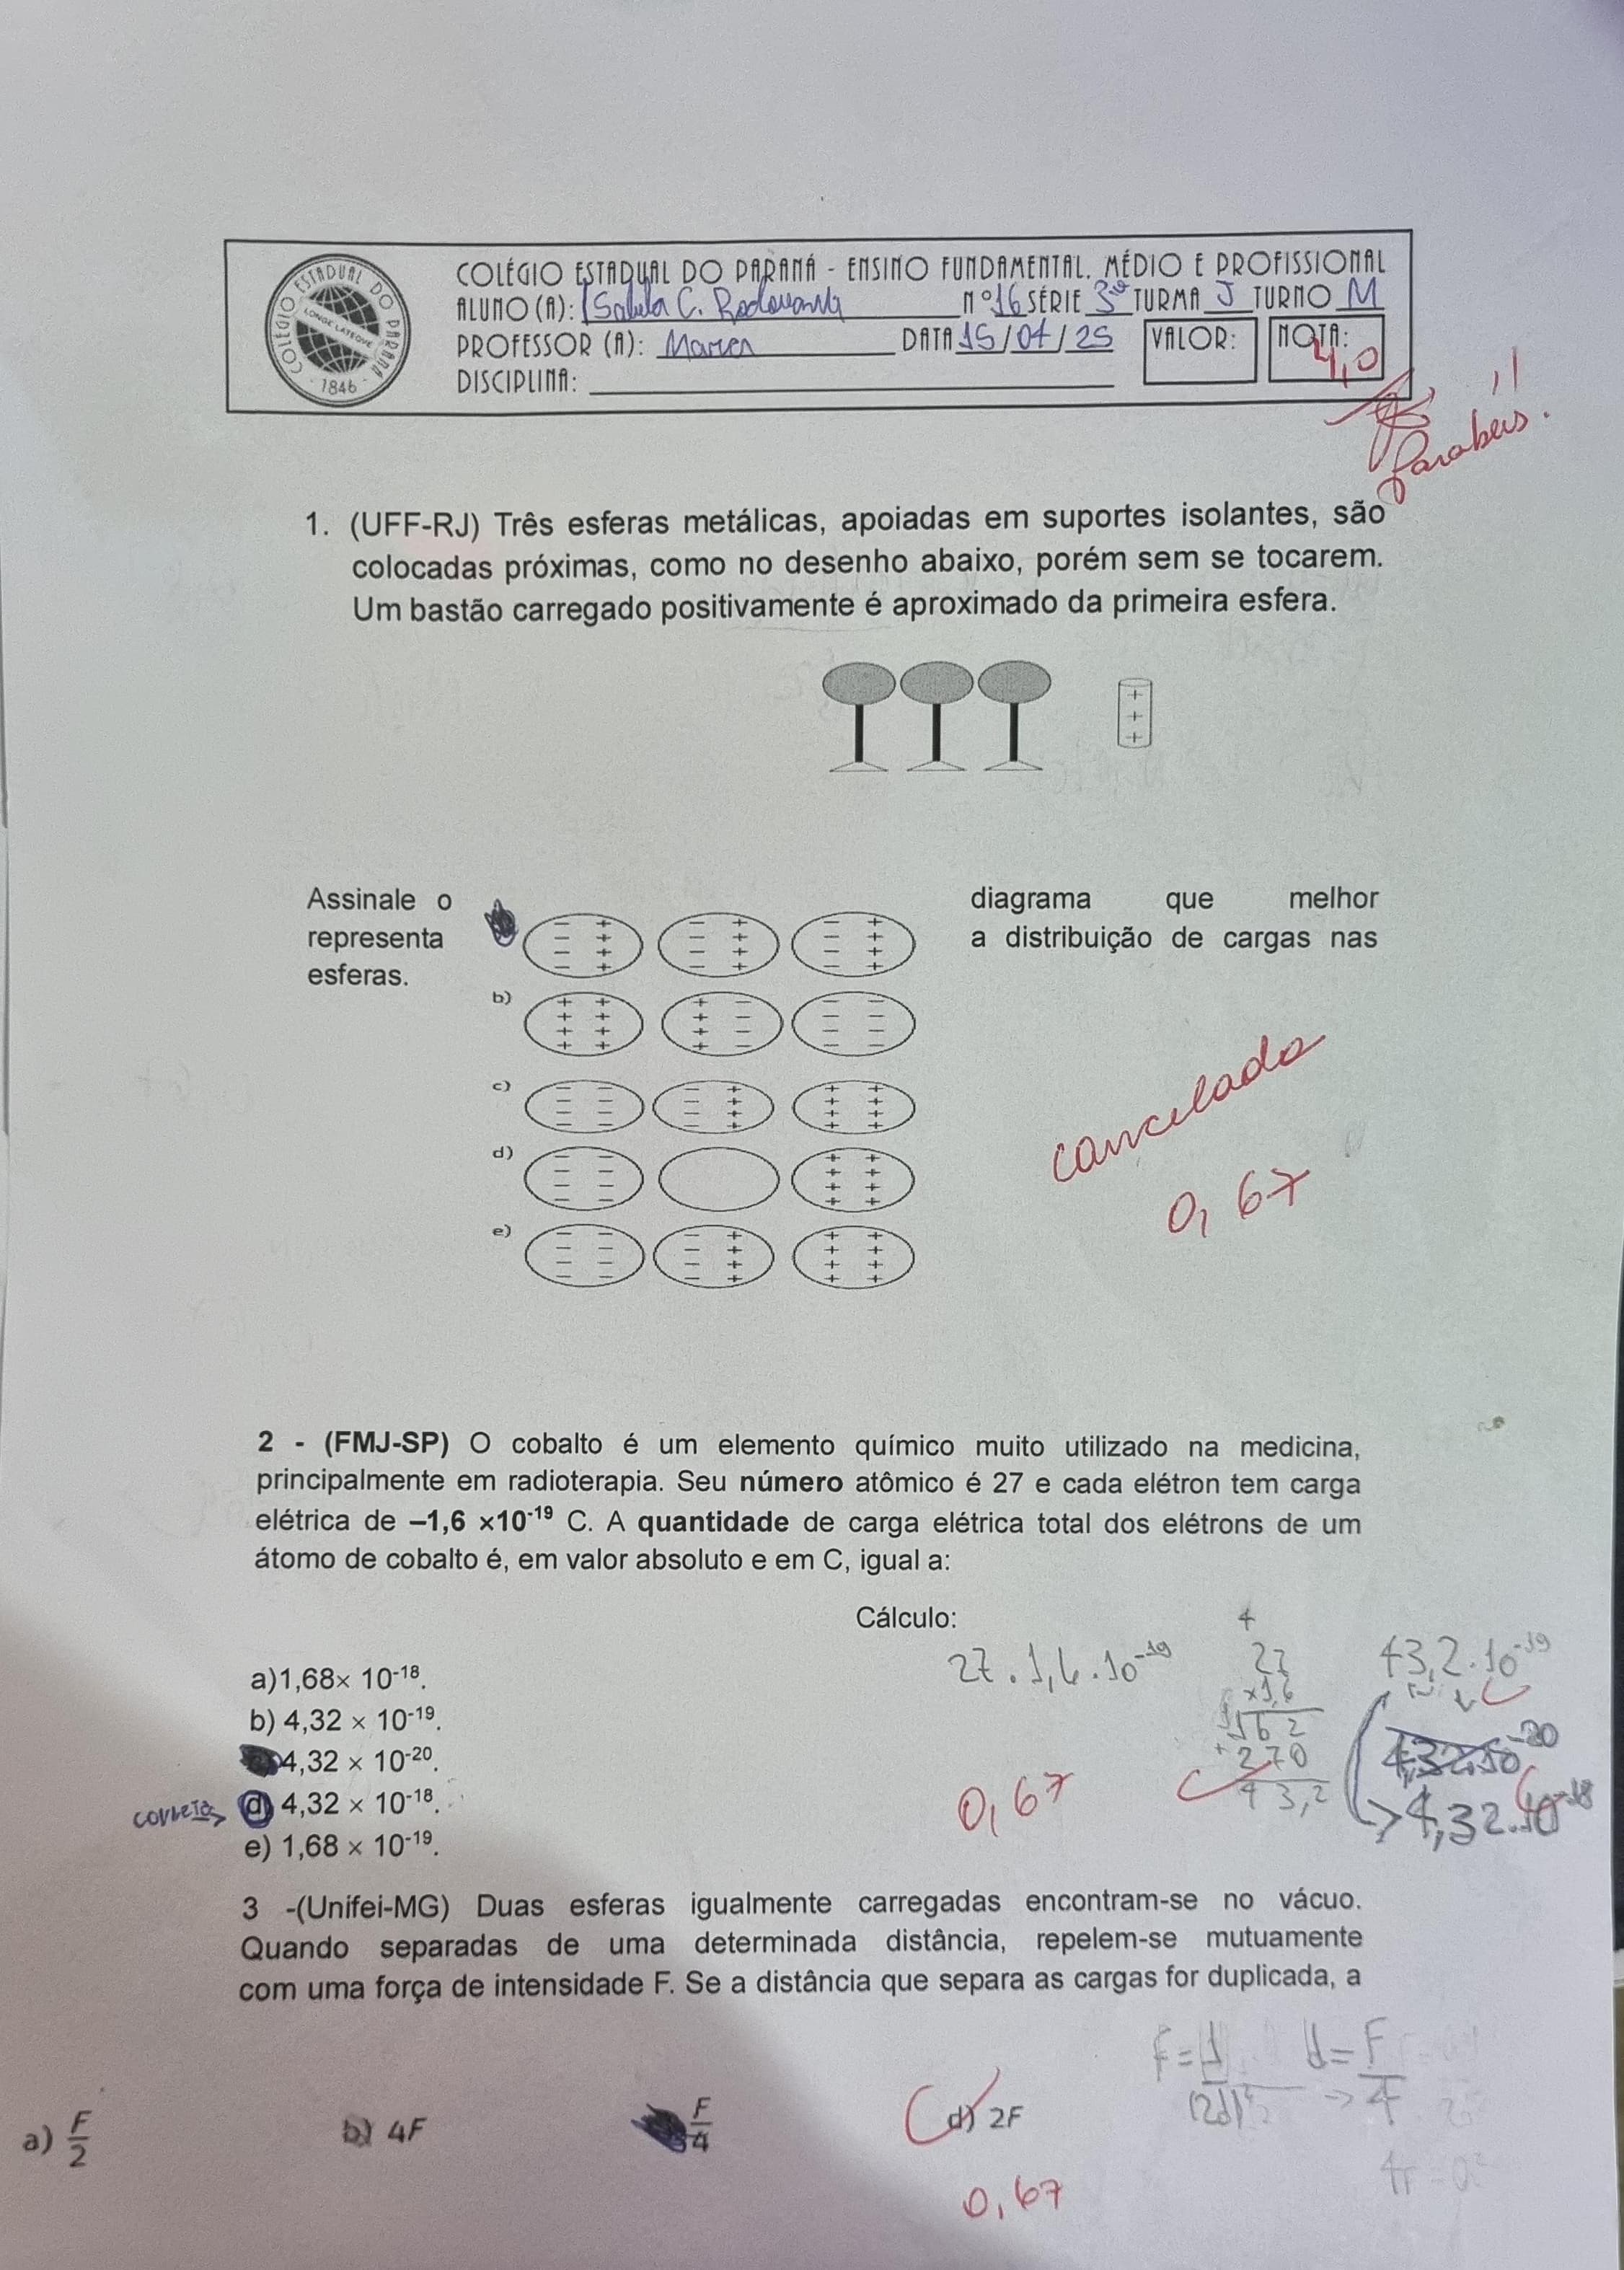 COLÉGIO ESTADUAL DO PARANÁ - ENSINO FUNDAMENTAL, MÉDIO E PROFISSIONAL
ALUNO (A): Isabela C. Nº 16 SÉRIE 3ª TURMA J TURNO M
PROFESSOR (A): DATA 15/04/25 VALOR: NOTA: 4,0
DISCIPLINA:
COLÉGIO ESTADUAL DO PARANÁ
LONGE LATEQUE
1846
Parabéns!!
1. (UFF-RJ) Três esferas metálicas, apoiadas em suportes isolantes, são
colocadas próximas, como no desenho abaixo, porém sem se tocarem.
Um bastão carregado positivamente é aproximado da primeira esfera.
+
+
+
Assinale o diagrama que melhor
representa a distribuição de cargas nas
esferas.
b)
c)
d)
e)
cancelada
0,67
2 - (FMJ-SP) O cobalto é um elemento químico muito utilizado na medicina,
principalmente em radioterapia. Seu número atômico é 27 e cada elétron tem carga
elétrica de –1,6 ×10⁻¹⁹ C. A quantidade de carga elétrica total dos elétrons de um
átomo de cobalto é, em valor absoluto e em C, igual a:
Cálculo:
27 . 1,6 . 10⁻¹⁹
4
27
x1,6
162
+270
43,2
43,2 . 10⁻¹⁹
4,32.10⁻²⁰
4,32.10⁻¹⁸
a)1,68× 10⁻¹⁸.
b) 4,32 × 10⁻¹⁹.
4,32 × 10⁻²⁰.
correta d) 4,32 × 10⁻¹⁸.
e) 1,68 × 10⁻¹⁹.
0,67
3 -(Unifei-MG) Duas esferas igualmente carregadas encontram-se no vácuo.
Quando separadas de uma determinada distância, repelem-se mutuamente
com uma força de intensidade F. Se a distância que separa as cargas for duplicada, a
a) F/2 b) 4F F/4 d) 2F
0,67